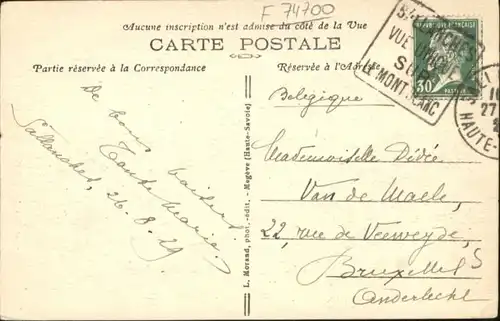 F 74700
Aucune inscription n'est admise du côté de la Vue
CARTE POSTALE
Partie réservée à la Correspondance
Réservée à l'Adresse
SALLANCHES
VUE UNIQUE
SUR
LE MONT-BLANC
RÉPUBLIQUE FRANÇAISE
30
PASTEUR
27
HAUTE-
De bons baisers
Tante Marie
Sallanches, 26.8.29
L. Morand, phot.-édit. - Megève (Haute-Savoie)
Belgique
Mademoiselle Didée
Van de Maele,
22, rue de Veeweyde,
Bruxelles
Anderlecht